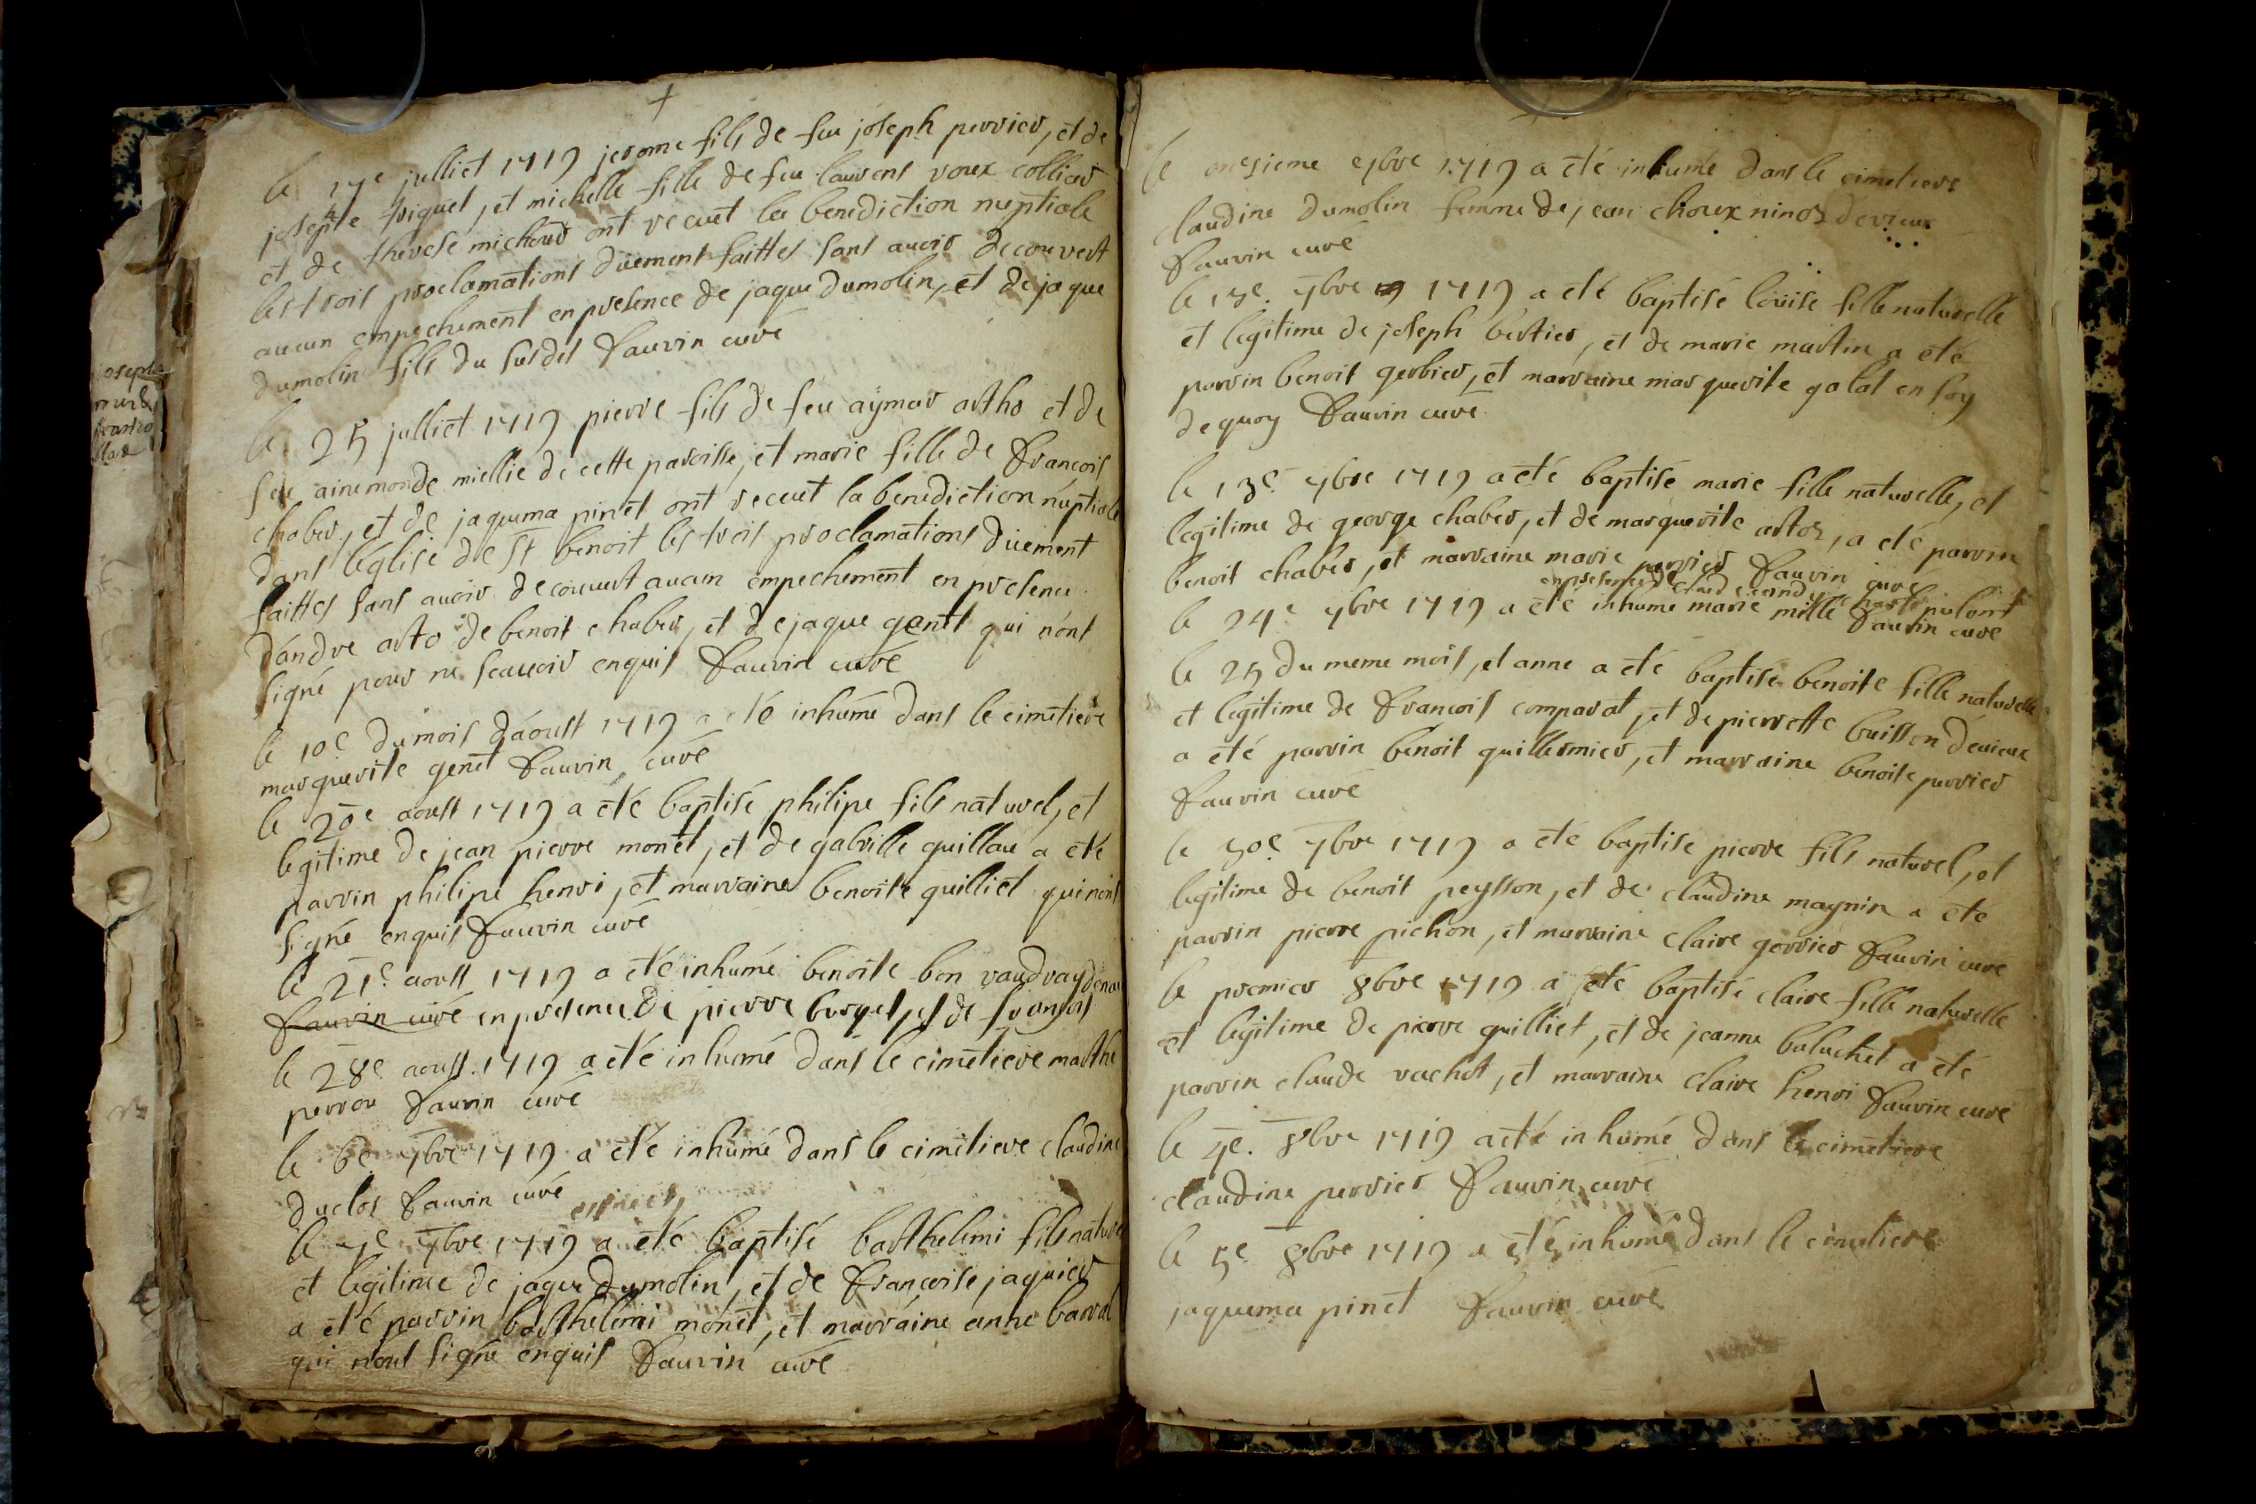 le 17e julliet 1719 jerome fils de feu joseph perrier, et de
josephte triquet, et michelle fille de feu laurens roux collier
et de therese michoud ont receut la benediction nuptiale
les trois proclamations düement faittes sans avoir decouvert
aucun empechement en presence de jaque dumolin, et de jaque
dumolin fils du susdit Fauvin curé
le 25 julliet 1719 pierre fils de feu aymar artho et de
feu ainemonde miellie de cette paroisse, et marie fille de François
chaber, et de jaquema pinet ont receut la benediction nuptiale
dans l'eglise de St benoit les trois proclamations düement
faittes sans avoir decouvert aucun empechement en presence
d'andre arto de benoit chaber, et de jaque genet qui n'ont
signé pour ne scauoir enquis Fauvin curé
le 10e du mois d'aoust 1719 a été inhumé dans le cimetiere
marguerite genet Fauvin curé
le 20e aoust 1719 a été baptisé philipe fils naturel, et
legitime de jean pierre monet, et de gabrille guillau a été
parrin philipe henri, et marraine benoite guilliet qui n'ont
signé enquis Fauvin curé
le 21e aoust 1719 a été inhumé benoite bon
Fauvin curé en presence de pierre borget, et de
le 28e aoust 1719 a été inhumé dans le cimetiere marthe
perrou Fauvin curé
le 6e 7bre 1719 a été inhumé dans le cimetiere claudine
duclos Fauvin curé
le 7e 7bre 1719 a été baptisé barthelemi fils naturel
et legitime de jaque dumolin, et de Françoise jaquier
a été parrin barthelemi monet, et marraine anne barral
qui n'ont signé enquis Fauvin curé
le onzieme 7bre 1719 a été inhumé dans le cimetiere
claudine dumolin femme de jean choux
Fauvin curé
le 13e 7bre 1719 a été baptisé loüise fille naturelle
et legitime de joseph bertier, et de marie martin a été
parrin benoit gerbier, et marraine marguerite galat en foy
de quoy Fauvin curé
le 13e 7bre 1719 a été baptisé marie fille naturelle, et
legitime de george chaber, et de marguerite artoz, a été parrin
benoit chaber, et marraine marie perrier Fauvin curé
en presence de
le 24e 7bre 1719 a été inhumé marie
Fauvin curé
le 25 du meme mois, et anne a été baptisé benoite fille naturelle
et legitime de François comparat, et de pierrette buisson d'evieux
a été parrin benoit guillermier, et marraine benoite perrier
Fauvin curé
le 30e 7bre 1719 a été baptisé pierre fils naturel, et
legitime de benoit peysson, et de claudine maynin a été
parrin pierre pichon, et marraine claire Fauvin curé
le premier 8bre 1719 a été baptisé claire fille naturelle
et legitime de pierre guilliet, et de jeanne baluchet a été
parrin claude vachot, et marraine claire henri Fauvin curé
le 4e. 8bre 1719 a été inhumé dans le cimetiere
claudine perrier Fauvin curé
le 5e 8bre 1719 a été inhumé dans le cimetiere
jaquema pinet Fauvin curé